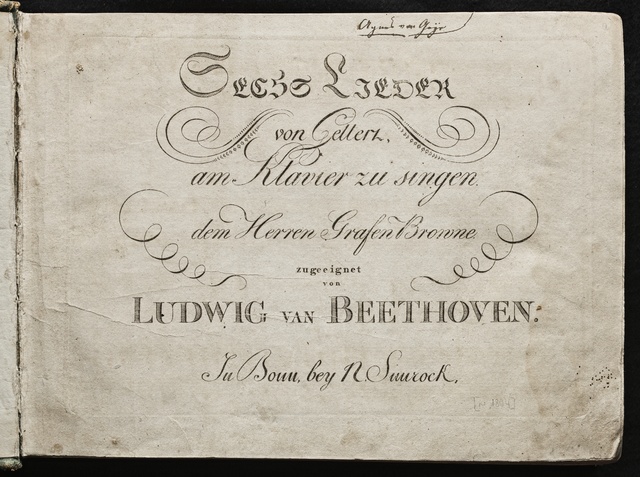 Sechs Lieder
von Gellert,
am Klavier zu singen.
dem Herren Grafen Browne
zugeeignet
von
LUDWIG VAN BEETHOVEN.
In Bonn, bey N Simrock.